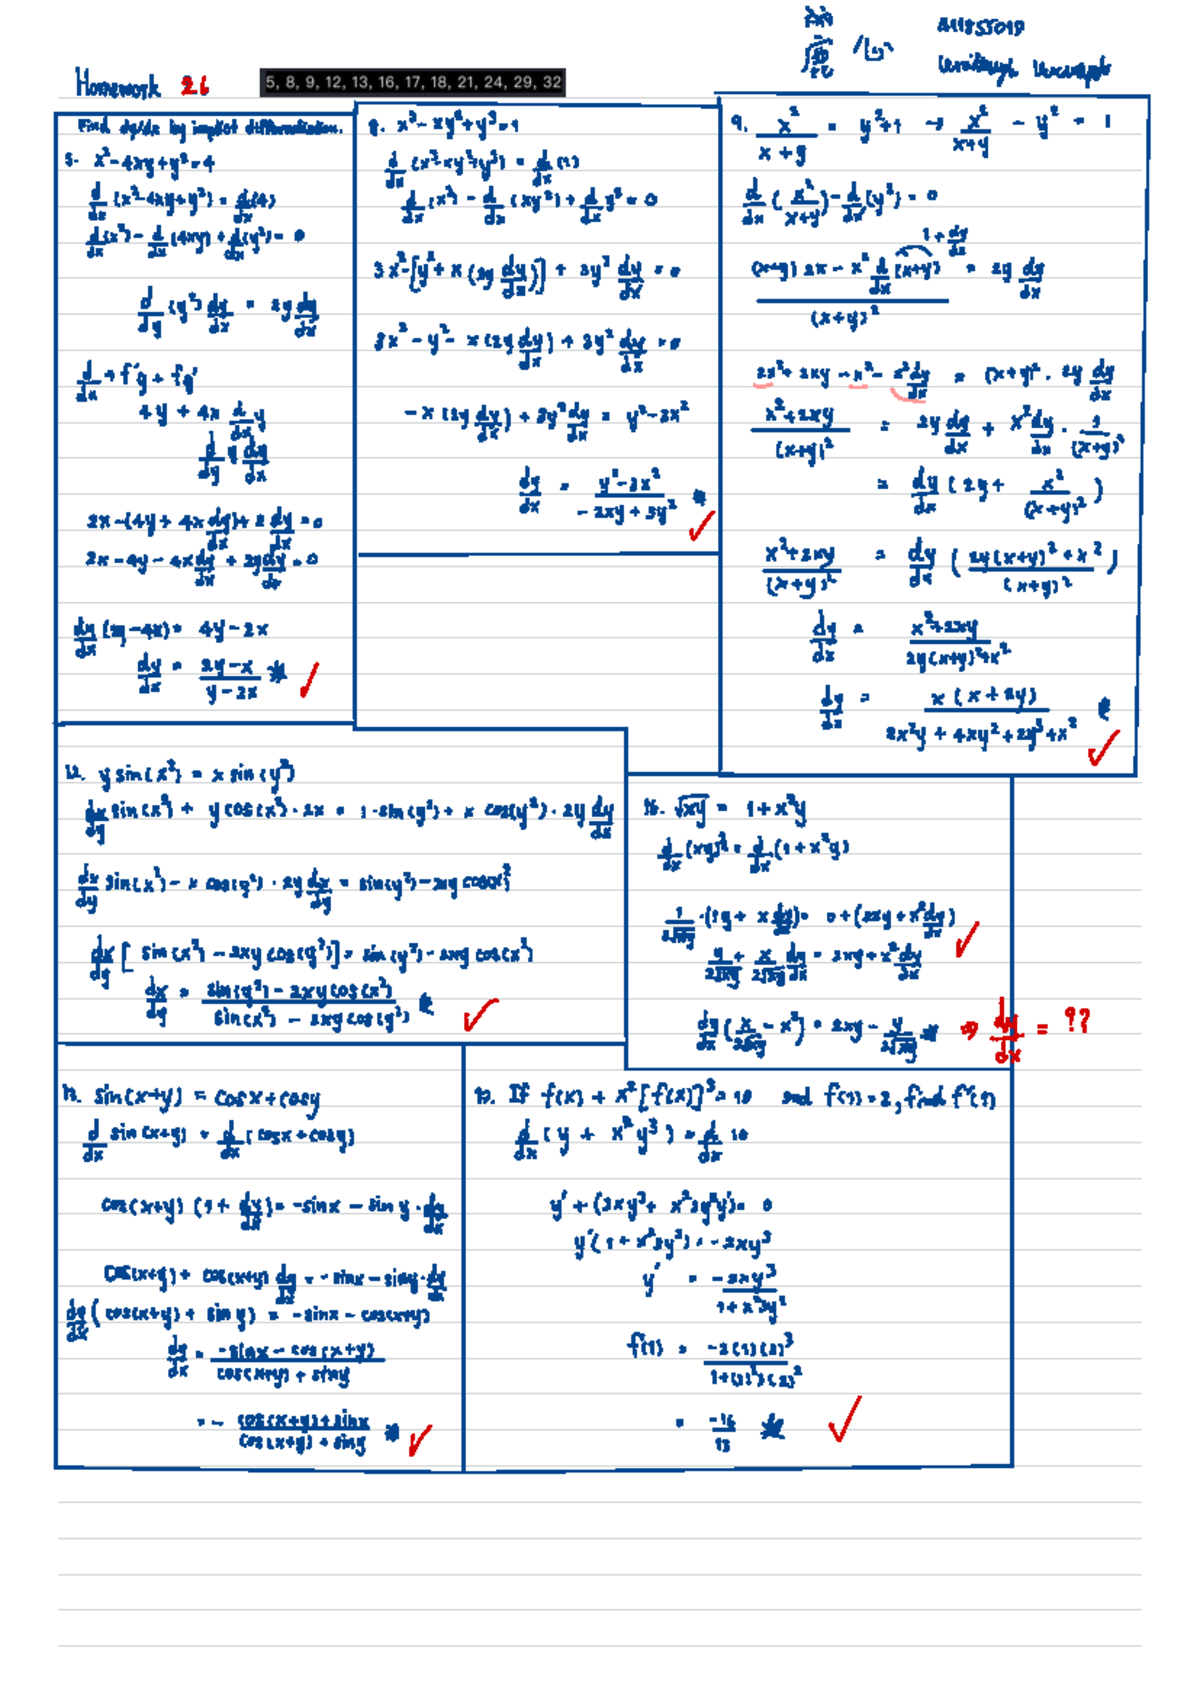 Homework 26
5, 8, 9, 12, 13, 16, 17, 18, 21, 24, 29, 32
Find dy/dx by implicit differentiation.
5. x²-4xy+y²=4
d/dx (x²-4xy+y²) = d/dx(4)
d/dx(x²) - d/dx(4xy) + d/dx(y²) = 0
d/dy (y²) dy/dx = 2y dy/dx
d/dx → f'g + fg'
4y + 4x d/dx y
d/dy y dy/dx
2x-(4y+4x dy/dx)+2 dy/dx=0
2x-4y-4x dy/dx + 2y dy/dx=0
dy/dx (2y-4x) = 4y-2x
dy/dx = (2y-x)/(y-2x)
8. x³-xy²+y³=1
d/dx (x³-xy²+y³) = d/dx(1)
d/dx (x³) - d/dx (xy²) + d/dx y³ = 0
3x²-[y²+x(2y dy/dx)] + 3y² dy/dx = 0
3x² - y² - x(2y dy/dx) + 3y² dy/dx = 0
-x(2y dy/dx) + 3y² dy/dx = y²-3x²
dy/dx = (y²-3x²)/(-2xy+3y²)
9. x²/(x+y) = y²+1 → x²/(x+y) - y² = 1
d/dx (x²/(x+y)) - d/dx (y²) = 0
1+dy/dx
((x+y)2x - x² d/dx (x+y))/(x+y)² = 2y dy/dx
2x²+2xy-x²-x² dy/dx = (x+y)². 2y dy/dx
(x²+2xy)/(x+y)² = 2y dy/dx + x² dy/dx · 1/(x+y)²
= dy/dx (2y + x²/(x+y)²)
(x²+2xy)/(x+y)² = dy/dx ((2y(x+y)²+x²)/(x+y)²)
dy/dx = (x²+2xy)/(2y(x+y)²+x²)
dy/dx = x(x+2y)/(2x²y+4xy²+2y³+x²)
12. y sin(x²) = x sin(y²)
dx/dy sin(x²) + y cos(x²)·2x = 1·sin(y²) + x cos(y²)·2y dy/dx
dx/dy sin(x²) - x cos(y²)·2y dx/dy = sin(y²)-2xy cos(x²)
dx/dy [sin(x²) - 2xy cos(y²)] = sin(y²) - 2xy cos(x²)
dx/dy = (sin(y²) - 2xy cos(x²))/(sin(x²) - 2xy cos(y²))
√xy = 1+x²y
1/2√xy ·(1y + x dy/dx) = 0+(2xy+x² dy/dx)
y/2√xy + x/2√xy dy/dx = 2xy+x² dy/dx
dy/dx (x/2√xy - x²) = 2xy - y/2√xy ⇒ dy/dx = ??
sin(x+y) = cosx+cosy
d/dx sin(x+y) = d/dx (cosx+cosy)
cos(x+y) (1+dy/dx) = -sinx - sin y · dy/dx
cos(x+y) + cos(x+y) dy/dx = -sinx - siny · dy/dx
dy/dx (cos(x+y) + sin y) = -sinx - cos(x+y)
dy/dx = (-sinx - cos(x+y))/(cos(x+y)+siny)
= - (cos(x+y)+sinx)/(cos(x+y)+siny)
If f(x) + x²[f(x)]³=10 and f(1)=2, find f'(1)
d/dx (y + x²y³) = d/dx 10
y' + (2xy³ + x²3y²y') = 0
y'(1+x²3y²) = -2xy³
y' = -2xy³/(1+x²3y²)
= -16/13